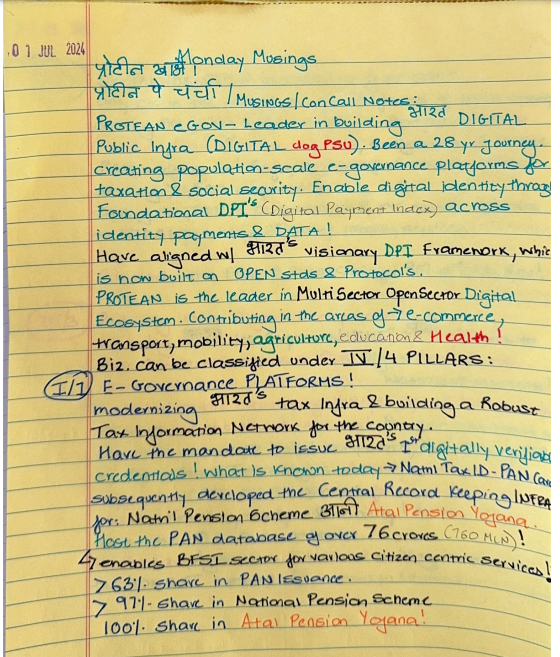 01 JUL 2024
Monday Musings
प्रोटीन खाओ !
प्रोटीन पे चर्चा / MUSINGS/ConCall Notes:
PROTEAN eGOV- Leader in building भारत DIGITAL
Public Infra (DIGITAL dog PSU). Been a 28 yr journey.
creating population-scale e-governance platforms for
taxation & social security. Enable digital identity throug
Foundational DPI's (Digital Payment Index) across
identity payments & DATA !
Have aligned w/ भारत's visionary DPI Framework, whic
is now built on OPEN stds & Protocol's.
PROTEAN is the leader in Multi Sector OpenSector Digital
Ecosystem. Contributing in the areas of → e-commerce,
transport, mobility, agriculture, education & Health !
Biz. can be classified under IV/4 PILLARS:
I/1 E-Governance PLATFORMS !
modernizing भारत's tax Infra & building a Robust
Tax Information Network for the country.
Have the mandate to issue भारत's Ist digitally verifiable
credentials ! What is known today → Natnl Tax ID-PAN Car
subsequently developed the Central Record Keeping INFRA
for: Natn'l Pension Scheme आनी Atal Pension Yojana.
Host the PAN database of over 76 crores (760 MLN) !
↳ enables BFSI sector for various citizen centric services !
> 63% share in PAN Issuance.
> 97% share in National Pension Scheme
100% share in Atal Pension Yojana !